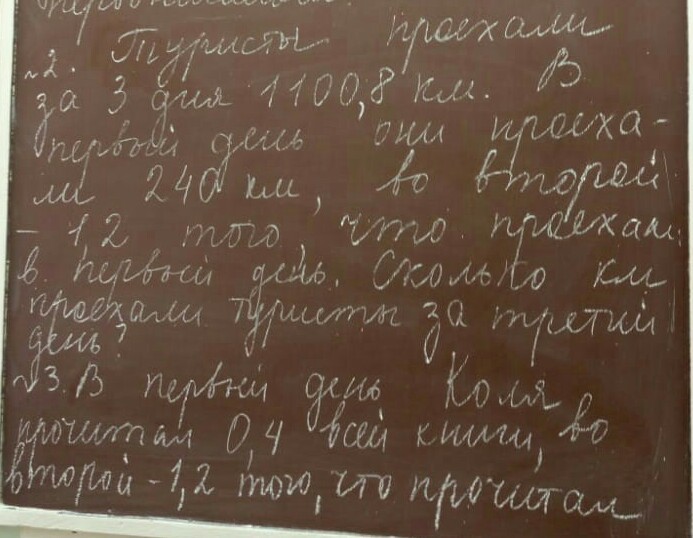 №2. Туристы проехали
за 3 дня 1100,8 км. В
первый день они проеха-
ли 240 км, во второй
- 1,2 того, что проехали
в первый день. Сколько км
проехали туристы за третий
день?
№3. В первый день Коля
прочитал 0,4 всей книги, во
второй - 1,2 того, что прочитал